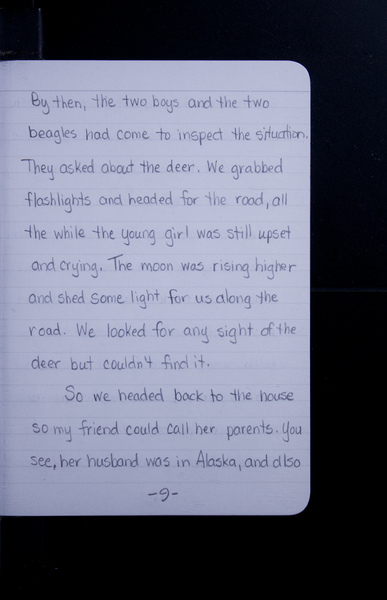 By then, the two boys and the two
beagles had come to inspect the situation.
They asked about the deer. We grabbed
flashlights and headed for the road, all
the while the young girl was still upset
and crying. The moon was rising higher
and shed some light for us along the
road. We looked for any sight of the
deer but couldn't find it.
So we headed back to the house
so my friend could call her parents. You
see, her husband was in Alaska, and also
-9-